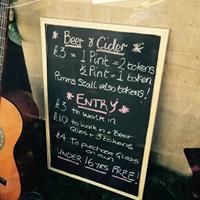 Beer & Cider
£3 = 1 Pint = 2 tokens
½ Pint = 1 token
Pimms Stall also tokens!
ENTRY
£3 to walk in
£10 to walk in + Beer
Glass + 3 tokens
£4 To purchase Glass
on own
UNDER 16 YRS FREE!